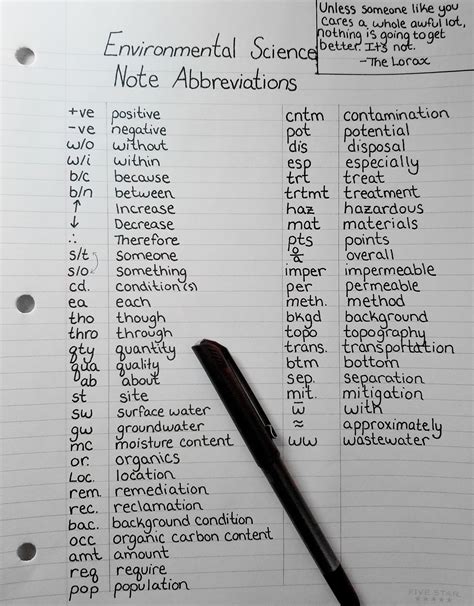 Unless someone like you
cares a whole awful lot,
nothing is going to get
better. It's not.
-The Lorax
Environmental Science
Note Abbreviations
+ve positive
-ve negative
w/o without
w/i within
b/c because
b/n between
↑ Increase
↓ Decrease
∴ Therefore
s/t Someone
s/o Something
cd. condition(s)
ea each
tho though
thro through
qty quantity
qua quality
ab about
st site
sw surface water
gw groundwater
mc moisture content
or. organics
Loc. location
rem. remediation
rec. reclamation
bac. background condition
occ organic carbon content
amt amount
req require
pop population
cntm contamination
pot potential
dis disposal
esp especially
trt treat
trtmt treatment
haz hazardous
mat materials
pts points
o/a overall
imper impermeable
per permeable
meth. method
bkgd background
topo topography
trans. transportation
btm bottom
sep. separation
mit. mitigation
w̅ with
≈ approximately
ww wastewater
FIVE STAR
★★★★★